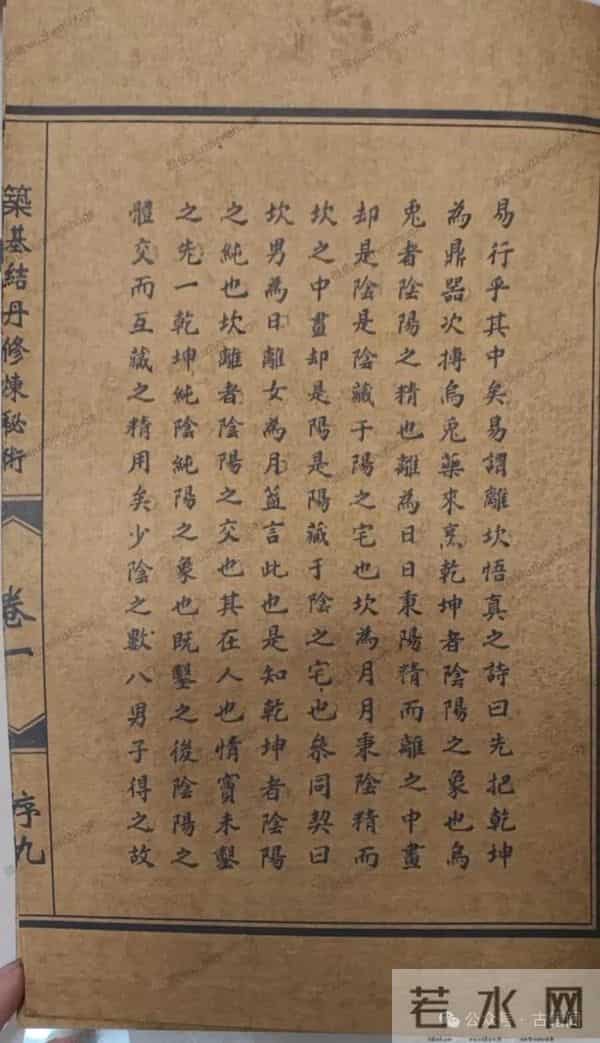 易行乎其中矣易謂離坎悟真之詩曰先把乾坤
為鼎器次摶烏兎藥來烹乾坤者陰陽之象也烏
兎者陰陽之精也離為日日秉陽精而離之中畫
却是陰是陰藏于陽之宅也坎為月月秉陰精而
坎之中畫却是陽是陽藏于陰之宅也叅同契曰
坎男為日離女為月葢言此也是知乾坤者陰陽
之純也坎離者陰陽之交也其在人也情竇未鑿
之先一乾坤純陰純陽之象也既鑿之後陰陽之
體交而互藏之精用矣少陰之數八男子得之故
築基結丹修煉秘術
卷一
序九
若水网
公众号·古